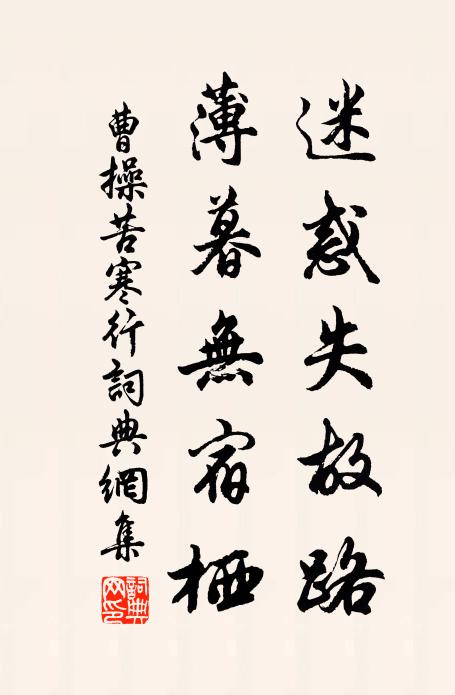 迷惑失故路
薄暮無宿栖
曹操苦寒行詞典網集
詞典網印